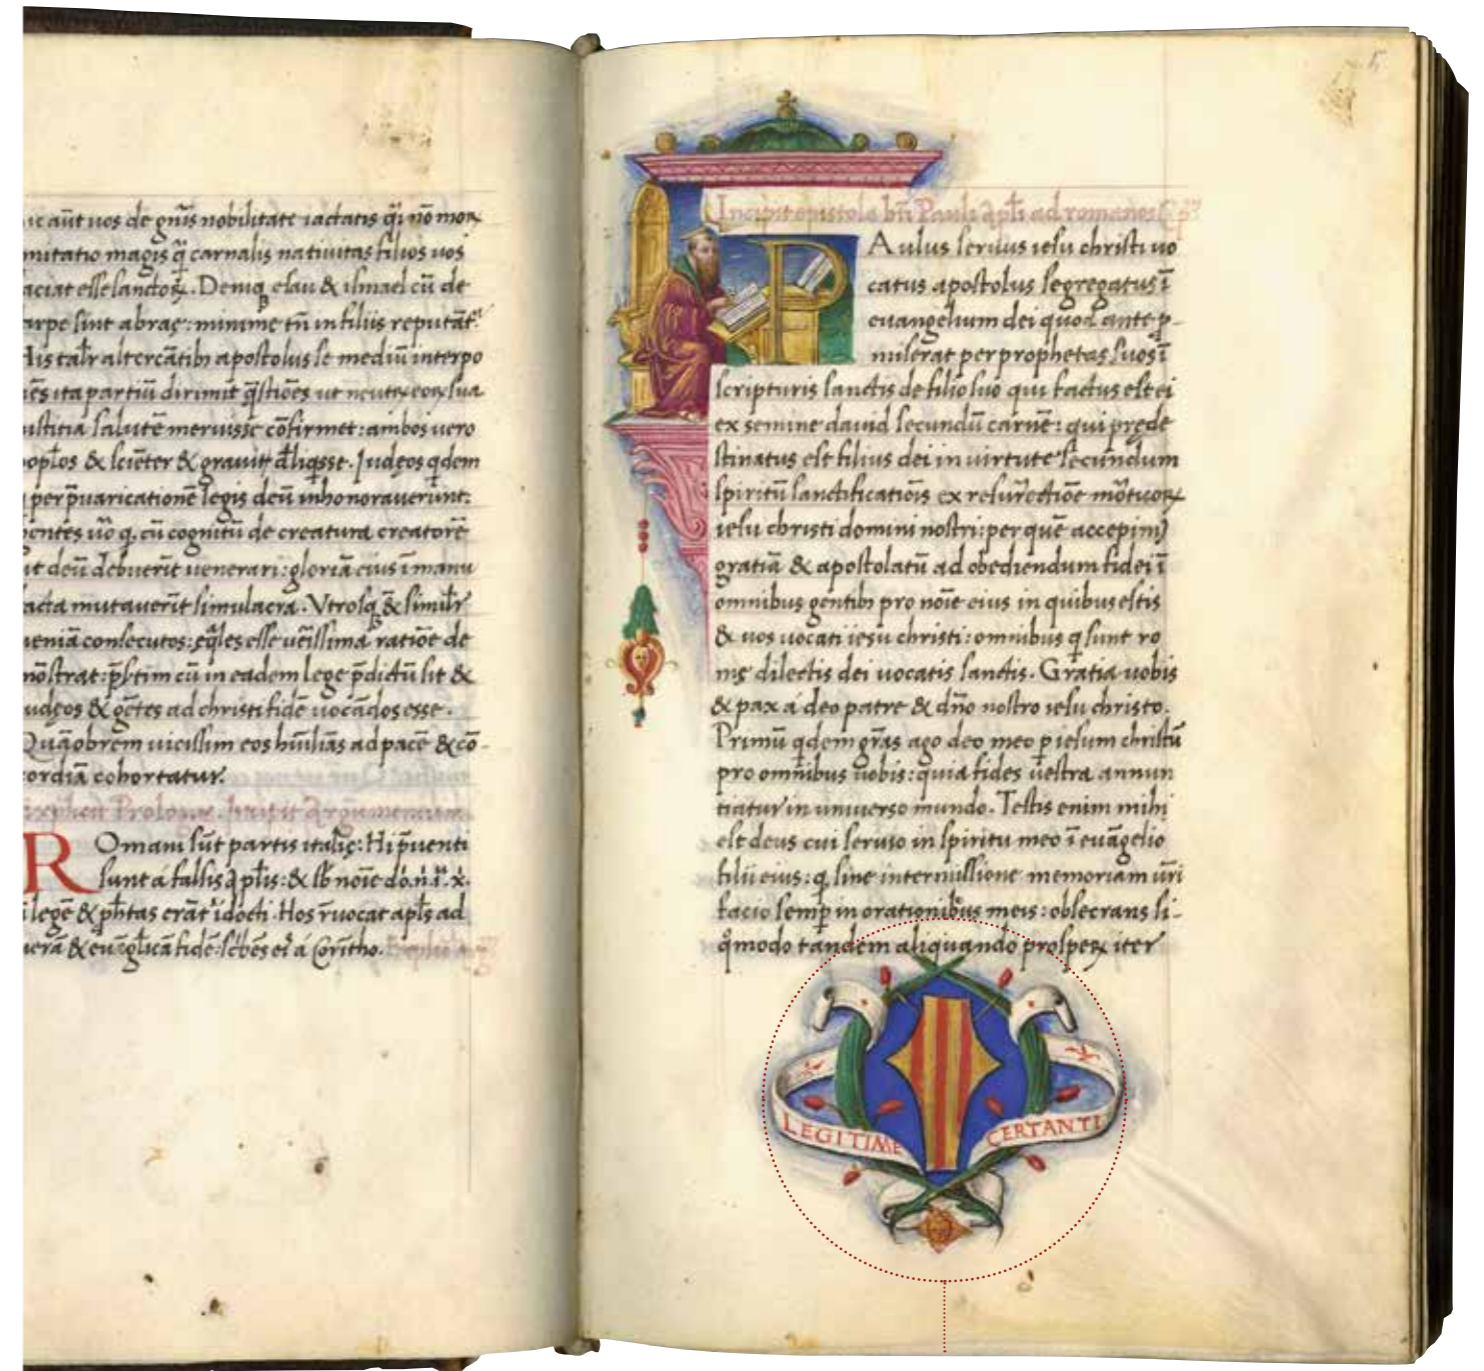 ic aūt uos de gn̄is nobilitate iactatis q̄i nō mox
mitatio magis q̄ carnalis natiuitas filios uos
aciat esse sanctoꝝ. Deniqꝫ esau & ismael cū de
irpe sint abraę: minime tn̄ in filiis reputāt̄.
His talr̄ altercātibꝫ apostolus se mediū interpo
ēs ita partiū dirimit q̄stiōes ut neutrꝝ eoꝝ sua
ustitia salutē meruisse cōfirmet: ambos uero
popl̄os & sciēter & grauit̄ deliq̄sse. Iudęos qdem
per p̄uaricationē legis deū inhonorauerunt:
gentes uō q. cū cognitū de creatura creatorē
ut deū debuerīt uenerari: gloriā eius ī manu
acta mutauerīt simulacra. Vtrosqꝫ & simil̄r
ueniā consecutos: ęq̄les esse uēissima ratiōe de
mōstrat: p̄sertim cū in eadem lege p̄dictū sit &
udęos & gētes ad christi fidē uocādos esse.
Quāobrēm uicissim eos hūiliās ad pacē & cō-
cordiā cohortatur.
explicit Prologus. Incipit Argumentum.
ROmani sūt partis italię: Hi p̄uenti
sunt a falsis apl̄is: & sb̄ noīe dō.n̄.iī.x̄.
i legē & ph̄tas erāt īdocti. Hos r̄uocat apl̄s ad
uerā & euāglicā fidē: scribēs eī a Corītho.
5
Incipit epistola bt̄i Pauli apl̄i ad romanos. Cp̄
PAulus seruus iesu christi uo
catus apostolus segregatus ī
euangelium dei quod ante p-
miserat per prophetas suos ī
scripturis sanctis de filio suo qui factus est ei
ex semine dauid secundū carnē: qui pręde
stinatus est filius dei in uirtute secundum
spiritū sanctificatiōis ex resurrectiōe mōtuoꝝ
iesu christi domini nostri: per quē accepimꝰ
gratiā & apostolatū ad obediendum fidei ī
omnibus gentibꝫ pro noīe eius in quibus estis
& uos uocati iesu christi: omnibus q sunt ro
mę dilectis dei uocatis sanctis. Gratia uobis
& pax á deo patre & dn̄o nostro iesu christo.
Primū qdem gr̄as ago deo meo p iesum christū
pro omnibus uobis: quia fides uestra annun
tiatur in uniuerso mundo. Testis enim mihi
est deus cui seruio in spiritu meo ī euāgelio
filii eius: q sine intermissione memoriam ur̄i
facio semp in orationibus meis: obsecrans si-
q̄modo tandem aliquando prosperꝝ iter
LEGITIME CERTANTI